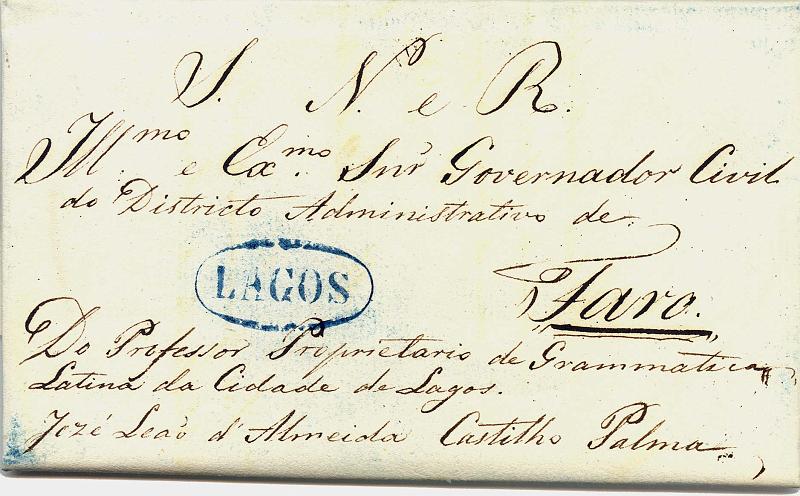 S. N. e R.
Ill.mo e Ex.mo Snr Governador Civil
do Districto Administrativo de
Faro.
LAGOS
Do Professor Proprietario de Grammatica
Latina da Cidade de Lagos.
Jozé Leaõ d'Almeida Castilho Palma